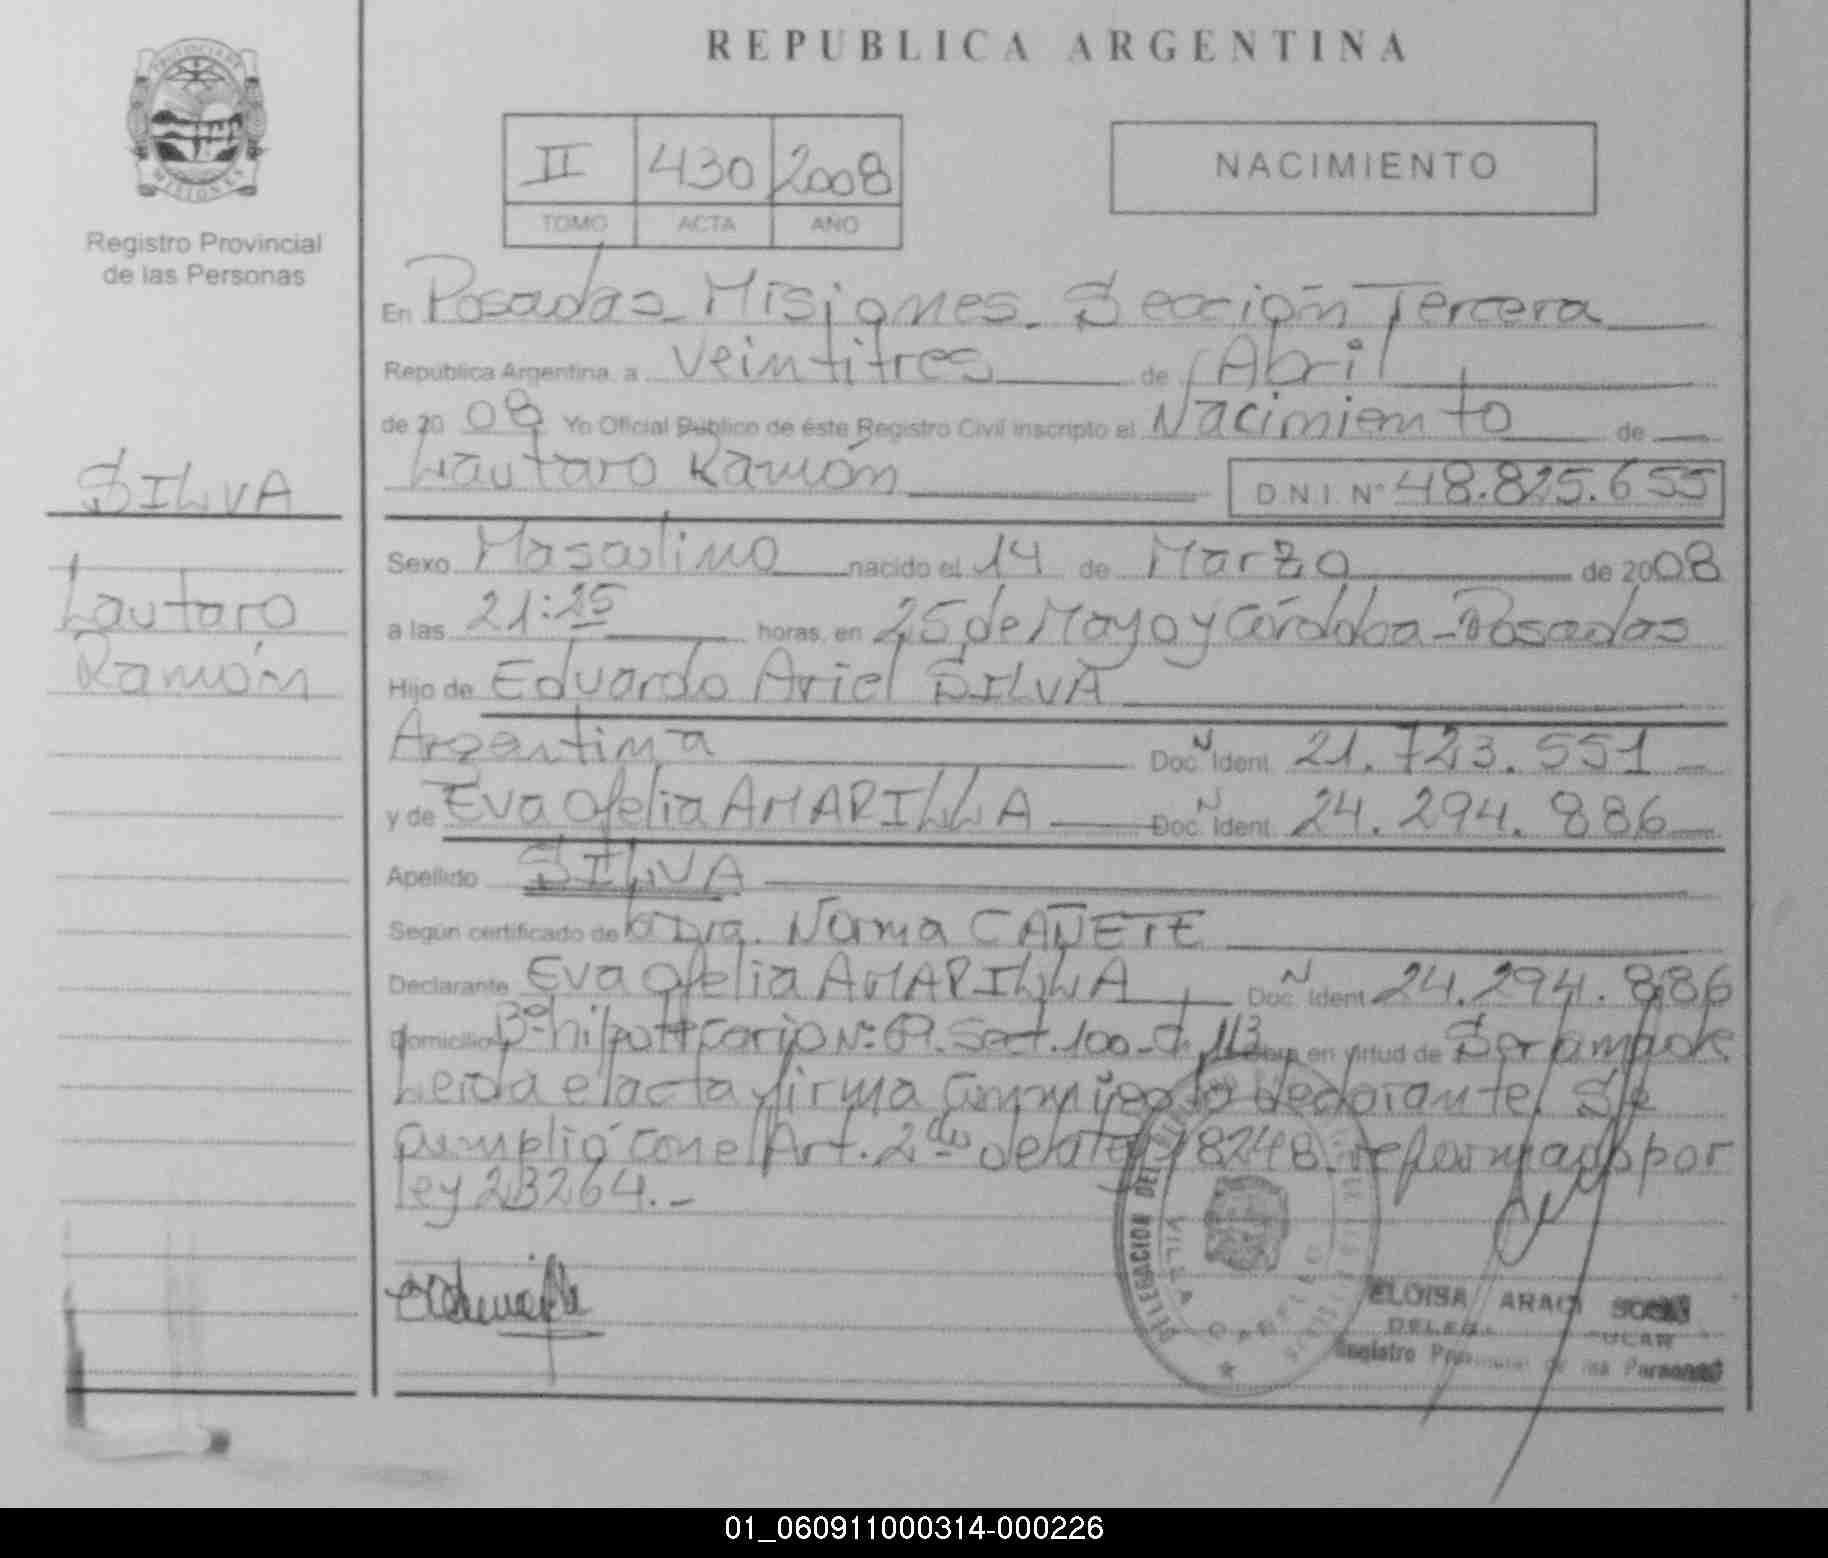 REPUBLICA ARGENTINA
PROVINCIA DE
MISIONES
Registro Provincial
de las Personas
II 430 2008
TOMO ACTA AÑO
NACIMIENTO
En Posadas - Misiones - Sección Tercera
República Argentina, a veintitres de Abril
de 20 08 Yo Oficial Público de éste Registro Civil inscripto el Nacimiento de
Lautaro Ramón D.N.I. Nº 48.825.655
SILVA
Lautaro
Ramón
Sexo Masculino nacido el 14 de Marzo de 2008
a las 21:25 horas, en 25 de Mayo y Córdoba - Posadas
Hijo de Eduardo Ariel SILVA
Argentina Doc. Ident. 21.723.551
y de Eva Ofelia AMARILLA Doc. Ident. 24.294.886
Apellido SILVA
Según certificado de la Dra. Norma CAÑETE
Declarante Eva Ofelia AMARILLA Doc. Ident. 24.294.886
Domicilio Bº hipotecario Nº 69. Sect. 100 - 113 en virtud de Ser la madre
Leída el acta firma conmigo la declarante. Se
cumplió con el Art. 2do de la ley 18248 reformado por
ley 23264.-
DELEGACION DEL
VILLA CABELLO
ELOISA ARACI
Registro Provincial de las Personas
01_060911000314-000226